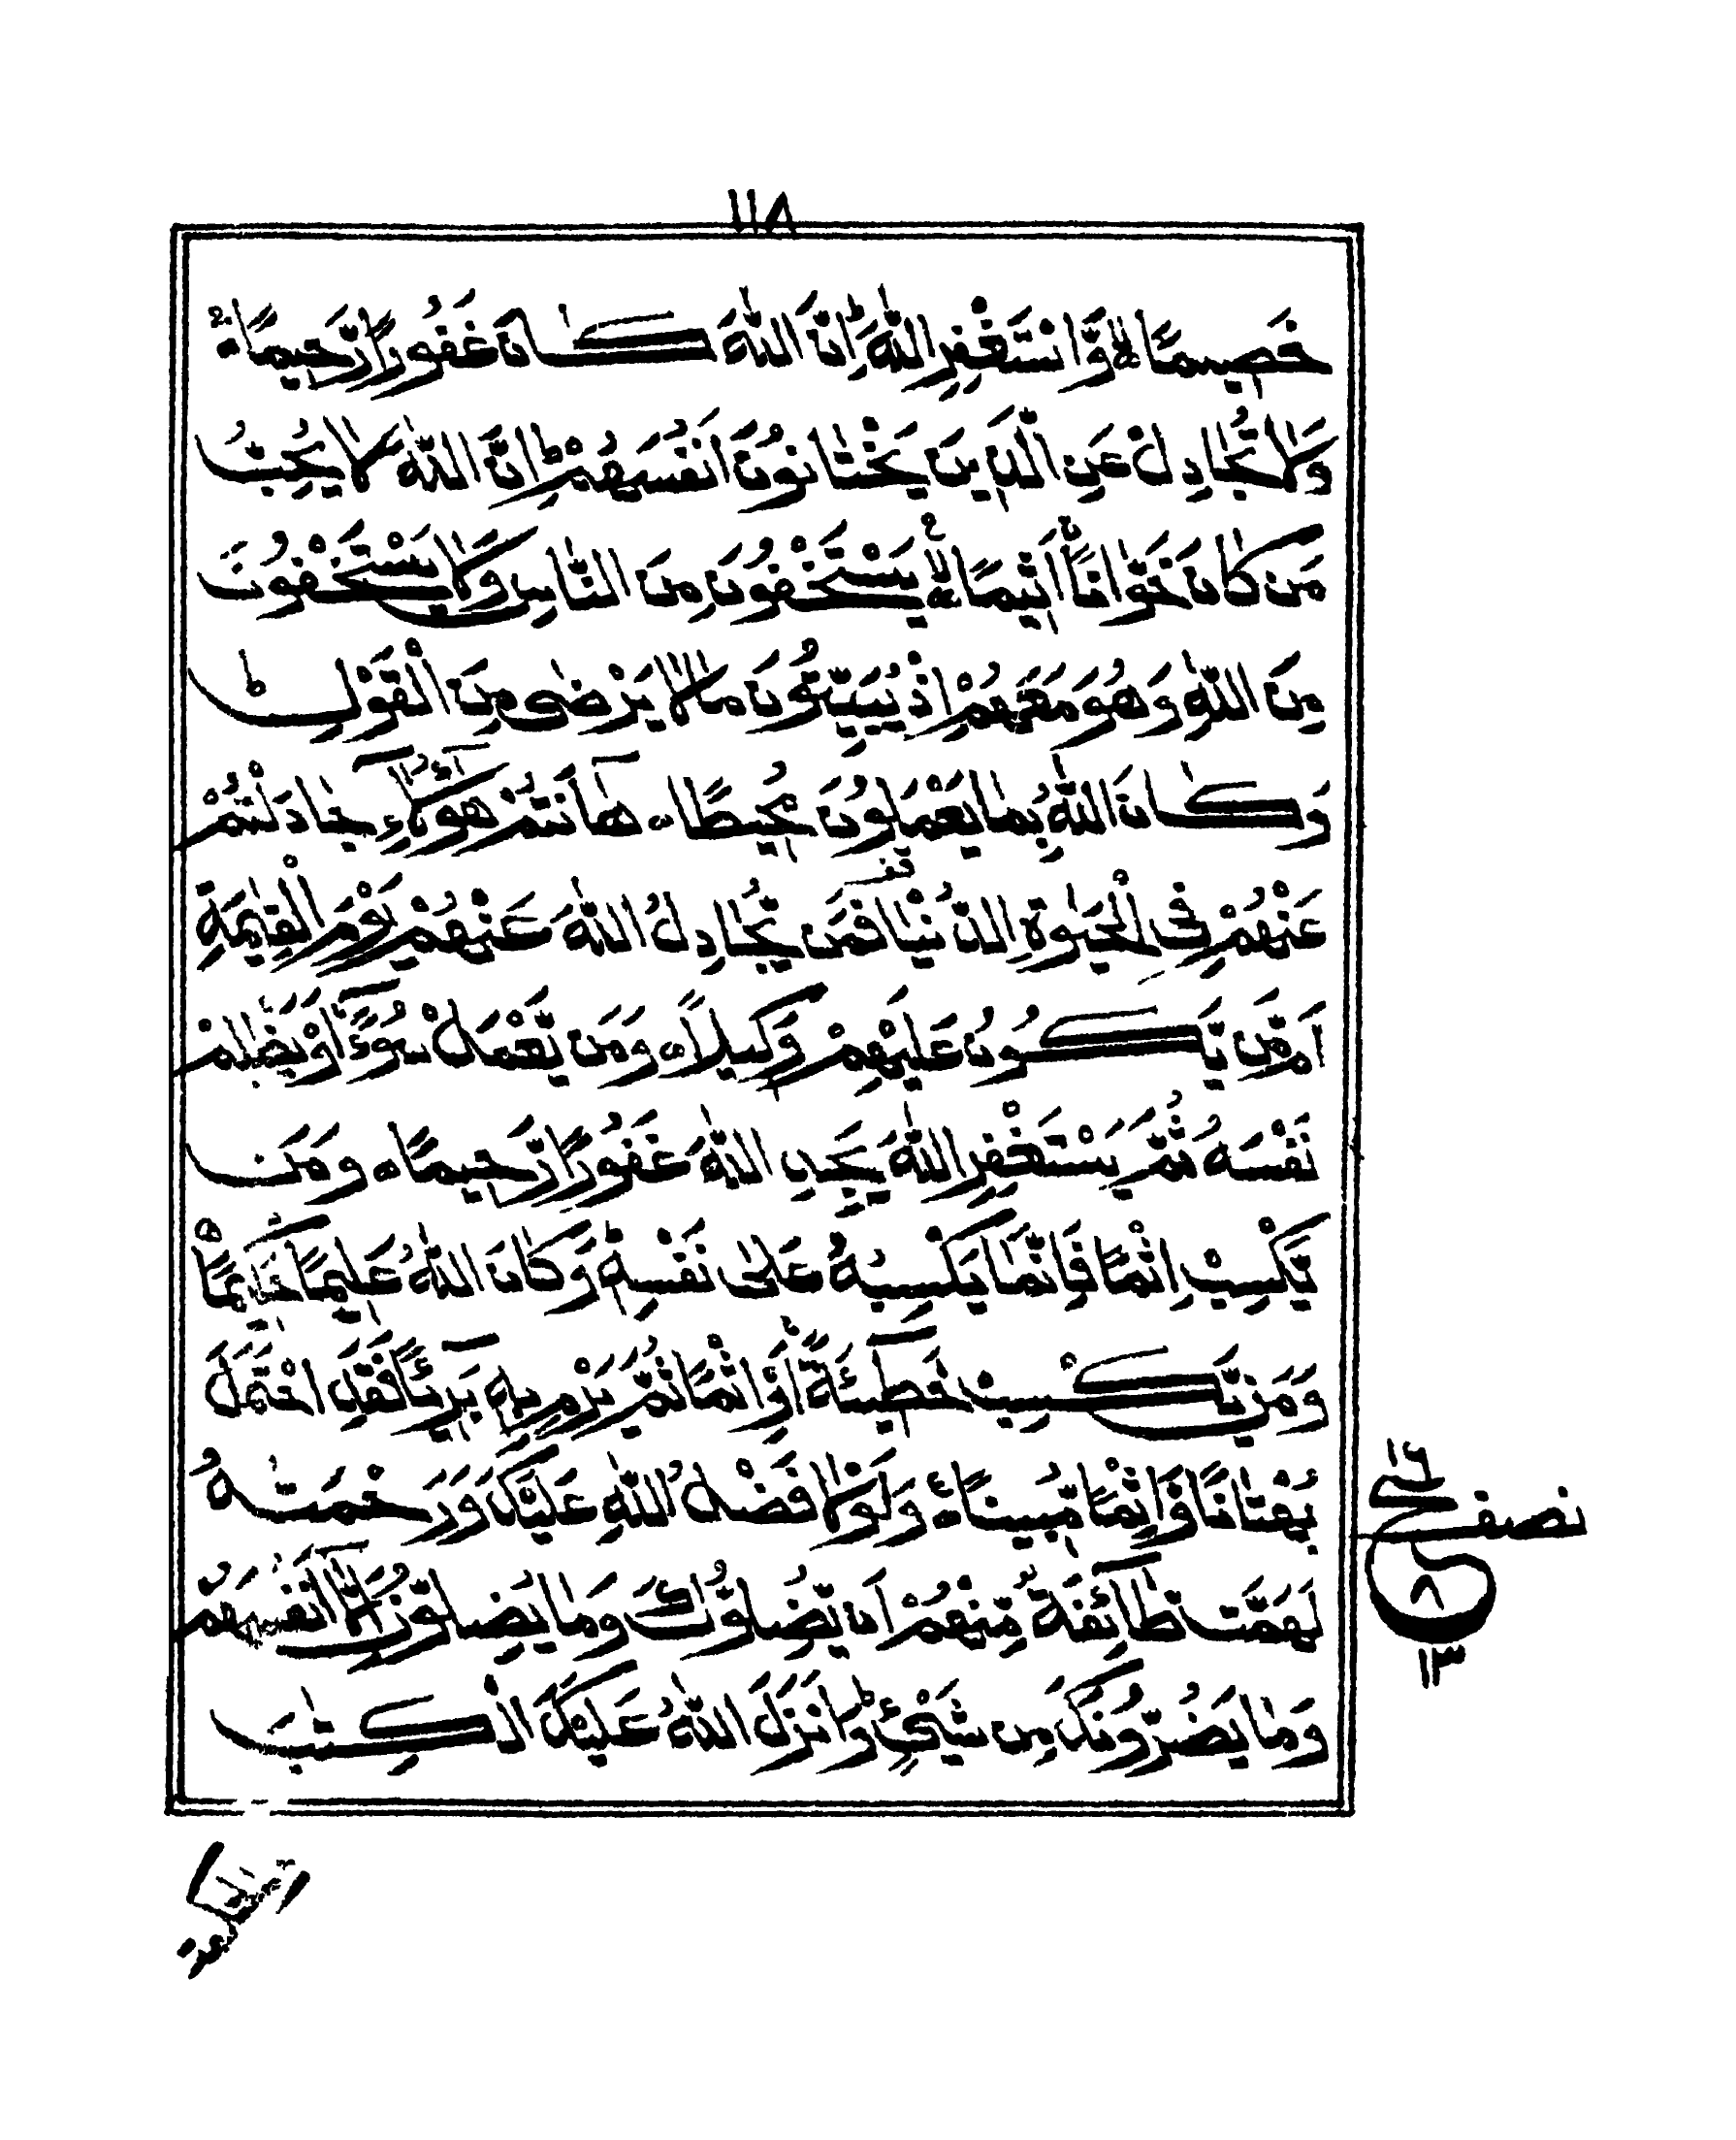 ١١٨
خَصِيمًا ۙ وَّاسْتَغْفِرِ اللّٰهَ ؕ اِنَّ اللّٰهَ كَانَ غَفُورًا رَّحِيمًا ۚ
وَلَا تُجَادِلْ عَنِ الَّذِينَ يَخْتَانُونَ اَنْفُسَهُمْ ؕ اِنَّ اللّٰهَ لَا يُحِبُّ
مَن كَانَ خَوَّانًا اَثِيمًا ۙ يَسْتَخْفُونَ مِنَ النَّاسِ وَلَا يَسْتَخْفُونَ
مِنَ اللّٰهِ وَهُوَ مَعَهُمْ اِذْ يُبَيِّتُونَ مَا لَا يَرْضٰى مِنَ الْقَوْلِ ؕ
وَكَانَ اللّٰهُ بِمَا يَعْمَلُونَ مُحِيطًا ۝ هٰٓاَنتُمْ هٰٓؤُلَآءِ جَادَلْتُمْ
عَنْهُمْ فِى الْحَيٰوةِ الدُّنْيَا قف فَمَن يُّجَادِلُ اللّٰهَ عَنْهُمْ يَوْمَ الْقِيٰمَةِ
اَم مَّن يَّكُونُ عَلَيْهِمْ وَكِيلًا ۝ وَمَن يَّعْمَلْ سُوٓءًا اَوْ يَظْلِمْ
نَفْسَهُ ثُمَّ يَسْتَغْفِرِ اللّٰهَ يَجِدِ اللّٰهَ غَفُورًا رَّحِيمًا ۝ وَمَن
يَّكْسِبْ اِثْمًا فَاِنَّمَا يَكْسِبُهُ عَلٰى نَفْسِهِ ؕ وَكَانَ اللّٰهُ عَلِيمًا حَكِيمًا ۝
وَمَن يَّكْسِبْ خَطِيٓئَةً اَوْ اِثْمًا ثُمَّ يَرْمِ بِهِ بَرِيٓئًا فَقَدِ احْتَمَلَ
بُهْتَانًا وَّاِثْمًا مُّبِينًا ۠ وَلَوْلَا فَضْلُ اللّٰهِ عَلَيْكَ وَرَحْمَتُهُ
لَهَمَّت طَّآئِفَةٌ مِّنْهُمْ اَن يُّضِلُّوكَ وَمَا يُضِلُّونَ اِلَّآ اَنْفُسَهُمْ
وَمَا يَضُرُّونَكَ مِن شَيْئٍ ؕ وَاَنزَلَ اللّٰهُ عَلَيْكَ الْكِتٰبَ
نصف
١٦
ع
٨
١٣